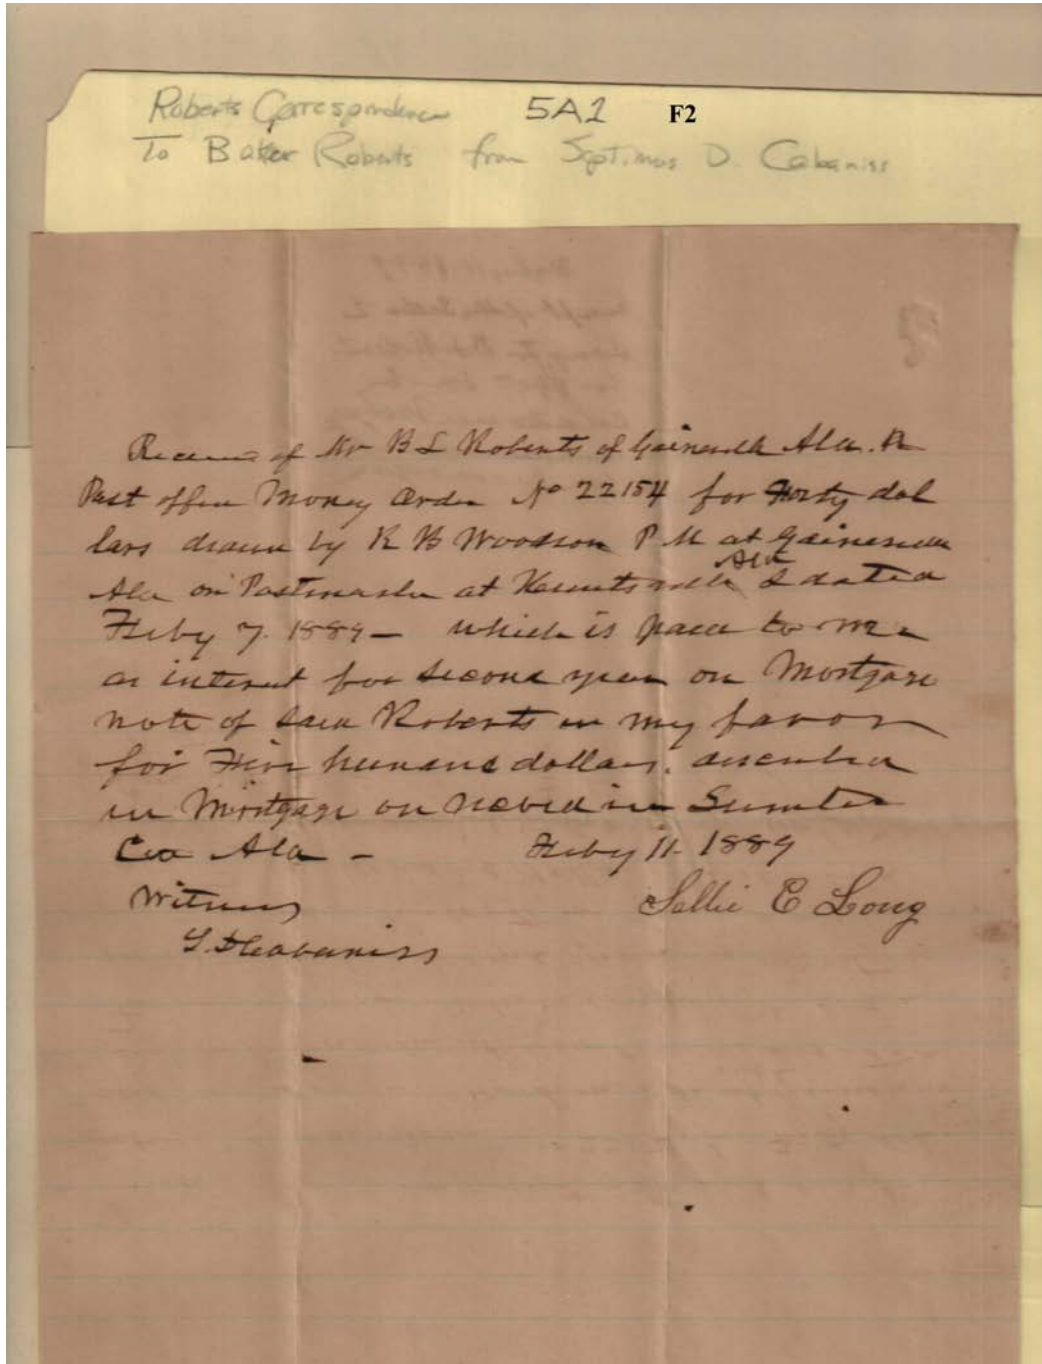 Roberts Correspondence 5A1 F2
To Baker Roberts from Septimus D. Cabaniss
Received of Mr B L Roberts of Gainesville Ala. A
Post office Money Order No 22154 for Forty dol
lars drawn by R B Woodson P M at Gainesville
Ala on Postmaster at Huntsville Ala & dated
Feby 7. 1889 - which is paid to me
as interest for second year on Mortgage
note of said Roberts in my favor
for Five hundred dollars. described
in Mortgage on record in Sumter
Co Ala - Feby 11. 1889
Witness Sallie E Long
S. D Cabaniss